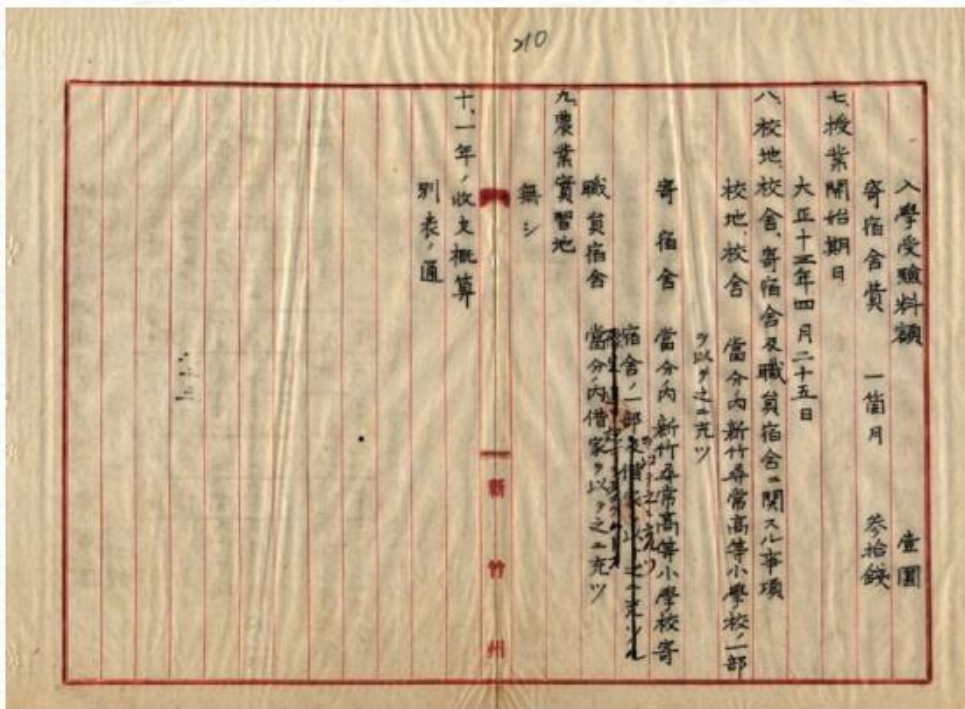 210
入學受驗料額 壹圓
寄宿舍費 一箇月 參拾錢
七、授業開始期日
大正十三年四月二十五日
八、校地、校舍、寄宿舍及職員宿舍ニ關スル事項
校地、校舍 當分ノ內新竹尋常高等小學校ノ一部
ヲ以テ之ニ充ツ
寄宿舍 當分ノ內新竹尋常高等小學校寄
宿舍ノ一部ヲ以テ之ニ充ツ
職員宿舍 當分ノ內借家ヲ以テ之ニ充ツ
九、農業實習地
無シ
十、一年ノ收支概算
別表ノ通
新竹州